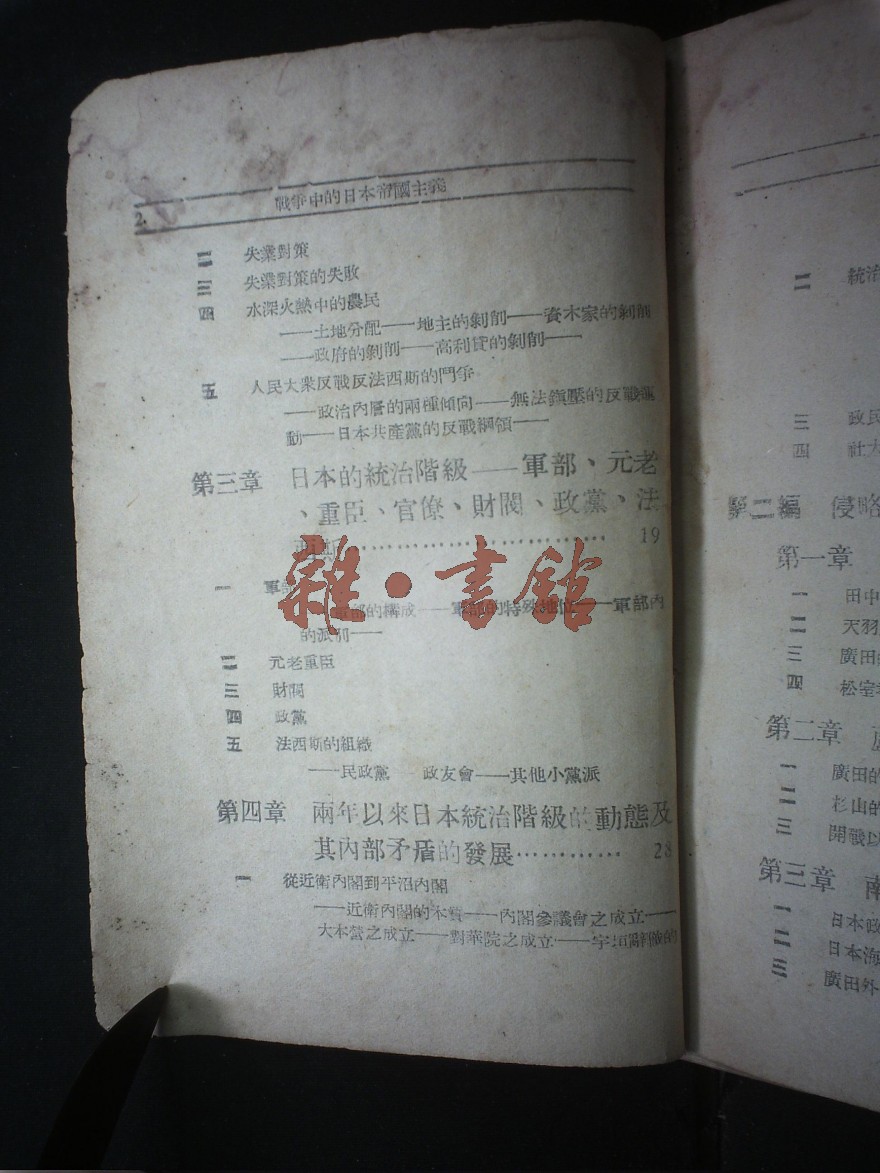 2.
戰爭中的日本帝國主義
二 失業對策
三 失業對策的失敗
四 水深火熱中的農民
——土地分配——地主的剝削——資本家的剝削
——政府的剝削——高利貸的剝削——
五 人民大衆反戰反法西斯的鬥爭
——政治內層的兩種傾向——無法鎮壓的反戰
動——日本共產黨的反戰綱領——
第三章 日本的統治階級——軍部、元老
、重臣、官僚、財閥、政黨、法
西斯…………………… 19
一 軍部
的構成——軍部的特殊地位——軍部內
的派別——
二 元老重臣
三 財閥
四 政黨
五 法西斯的組織
——民政黨 政友會——其他小黨派
第四章 兩年以來日本統治階級的動態及
其內部矛盾的發展………… 28
一 從近衛內閣到平沼內閣
——近衛內閣的本質——內閣參議會之成立——
大本營之成立——對華院之成立——宇垣
雜·書館
二 統治
三 政民
四 社大
第二編 侵略
第一章
一 田中
二 天羽
三 廣田
四 松室
第二章
一 廣田的
二 杉山的
三 開戰以
第三章 南
一 日本政
二 日本海
三 廣田外